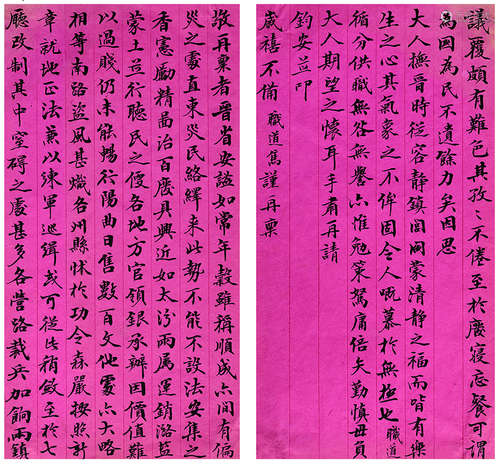 敬再稟者晉省安謐如常年穀雖稱順成亦間有偏
災之處直東災民絡繹來此勢不能不設法安集之
香憲勵精圖治百廢具興近如太汾兩屬運銷潞鹽
蒙土並行聽民之便各地方官領銀承辦因價值難
以過賤仍未能暢行陽曲日售數百文他處亦大略
相等南路盜風甚熾各州縣怵於功令森嚴按照計
章就地正法兼以練軍巡緝或可從此稍斂至於七
廳改制其中窒礙之處甚多各營路裁兵加餉兩鎮
議覆頗有難色其孜〻不倦至於廢寢忘餐可謂
為国為民不遺餘力矣因思
大人撫晉時從容靜鎮閭閻蒙清靜之福而皆有樂
生之心其氣象之不侔固令人嘅慕於無極也職道
循分供職無咎無譽亦惟勉策駑庸倍矢勤慎毋負
大人期望之懷耳手肅再請
鈞安並叩
歲禧不備 職道雋謹再稟